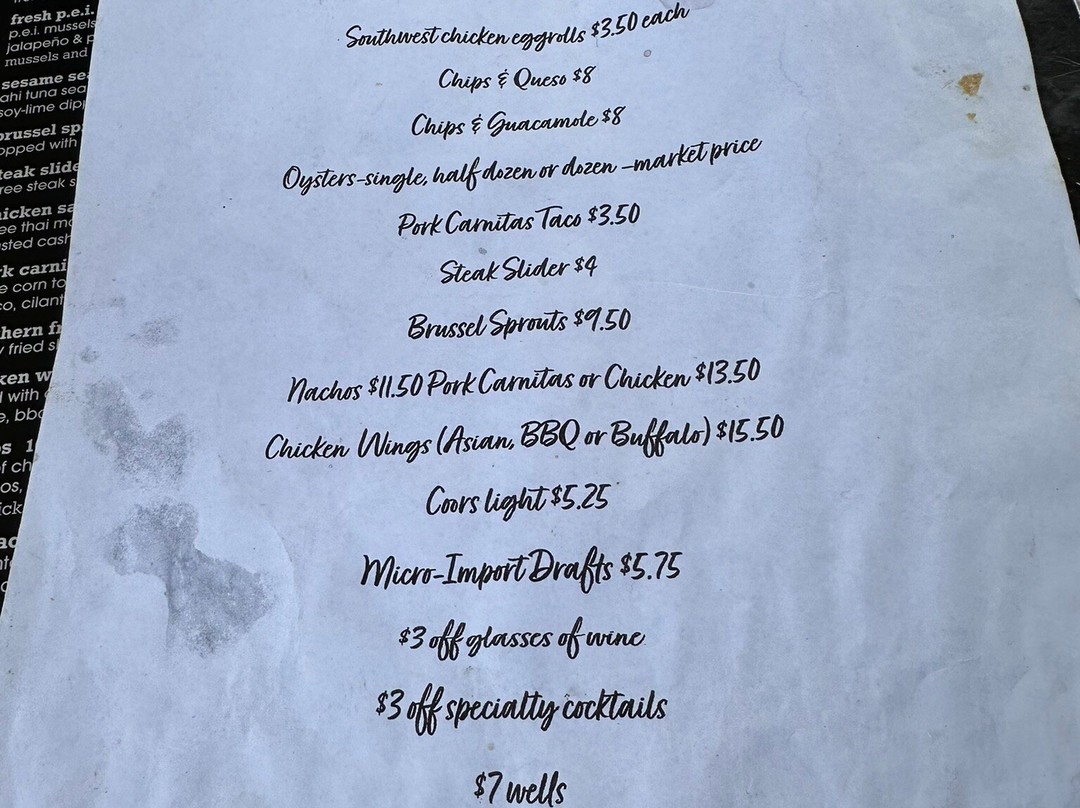 fresh p.e.i.
p.e.i. mussels
jalapeño &
mussels and
sesame
ahi tuna
soy-lime
brussel
with
steak
steak
thai
corn
fried
with
of
Southwest chicken eggrolls $3.50 each
Chips & Queso $8
Chips & Guacamole $8
Oysters-single, half dozen or dozen -market price
Pork Carnitas Taco $3.50
Steak Slider $4
Brussel Sprouts $9.50
Nachos $11.50 Pork Carnitas or Chicken $13.50
Chicken Wings (Asian, BBQ or Buffalo) $15.50
Coors light $5.25
Micro-Import Drafts $5.75
$3 off glasses of wine
$3 off specialty cocktails
$7 wells